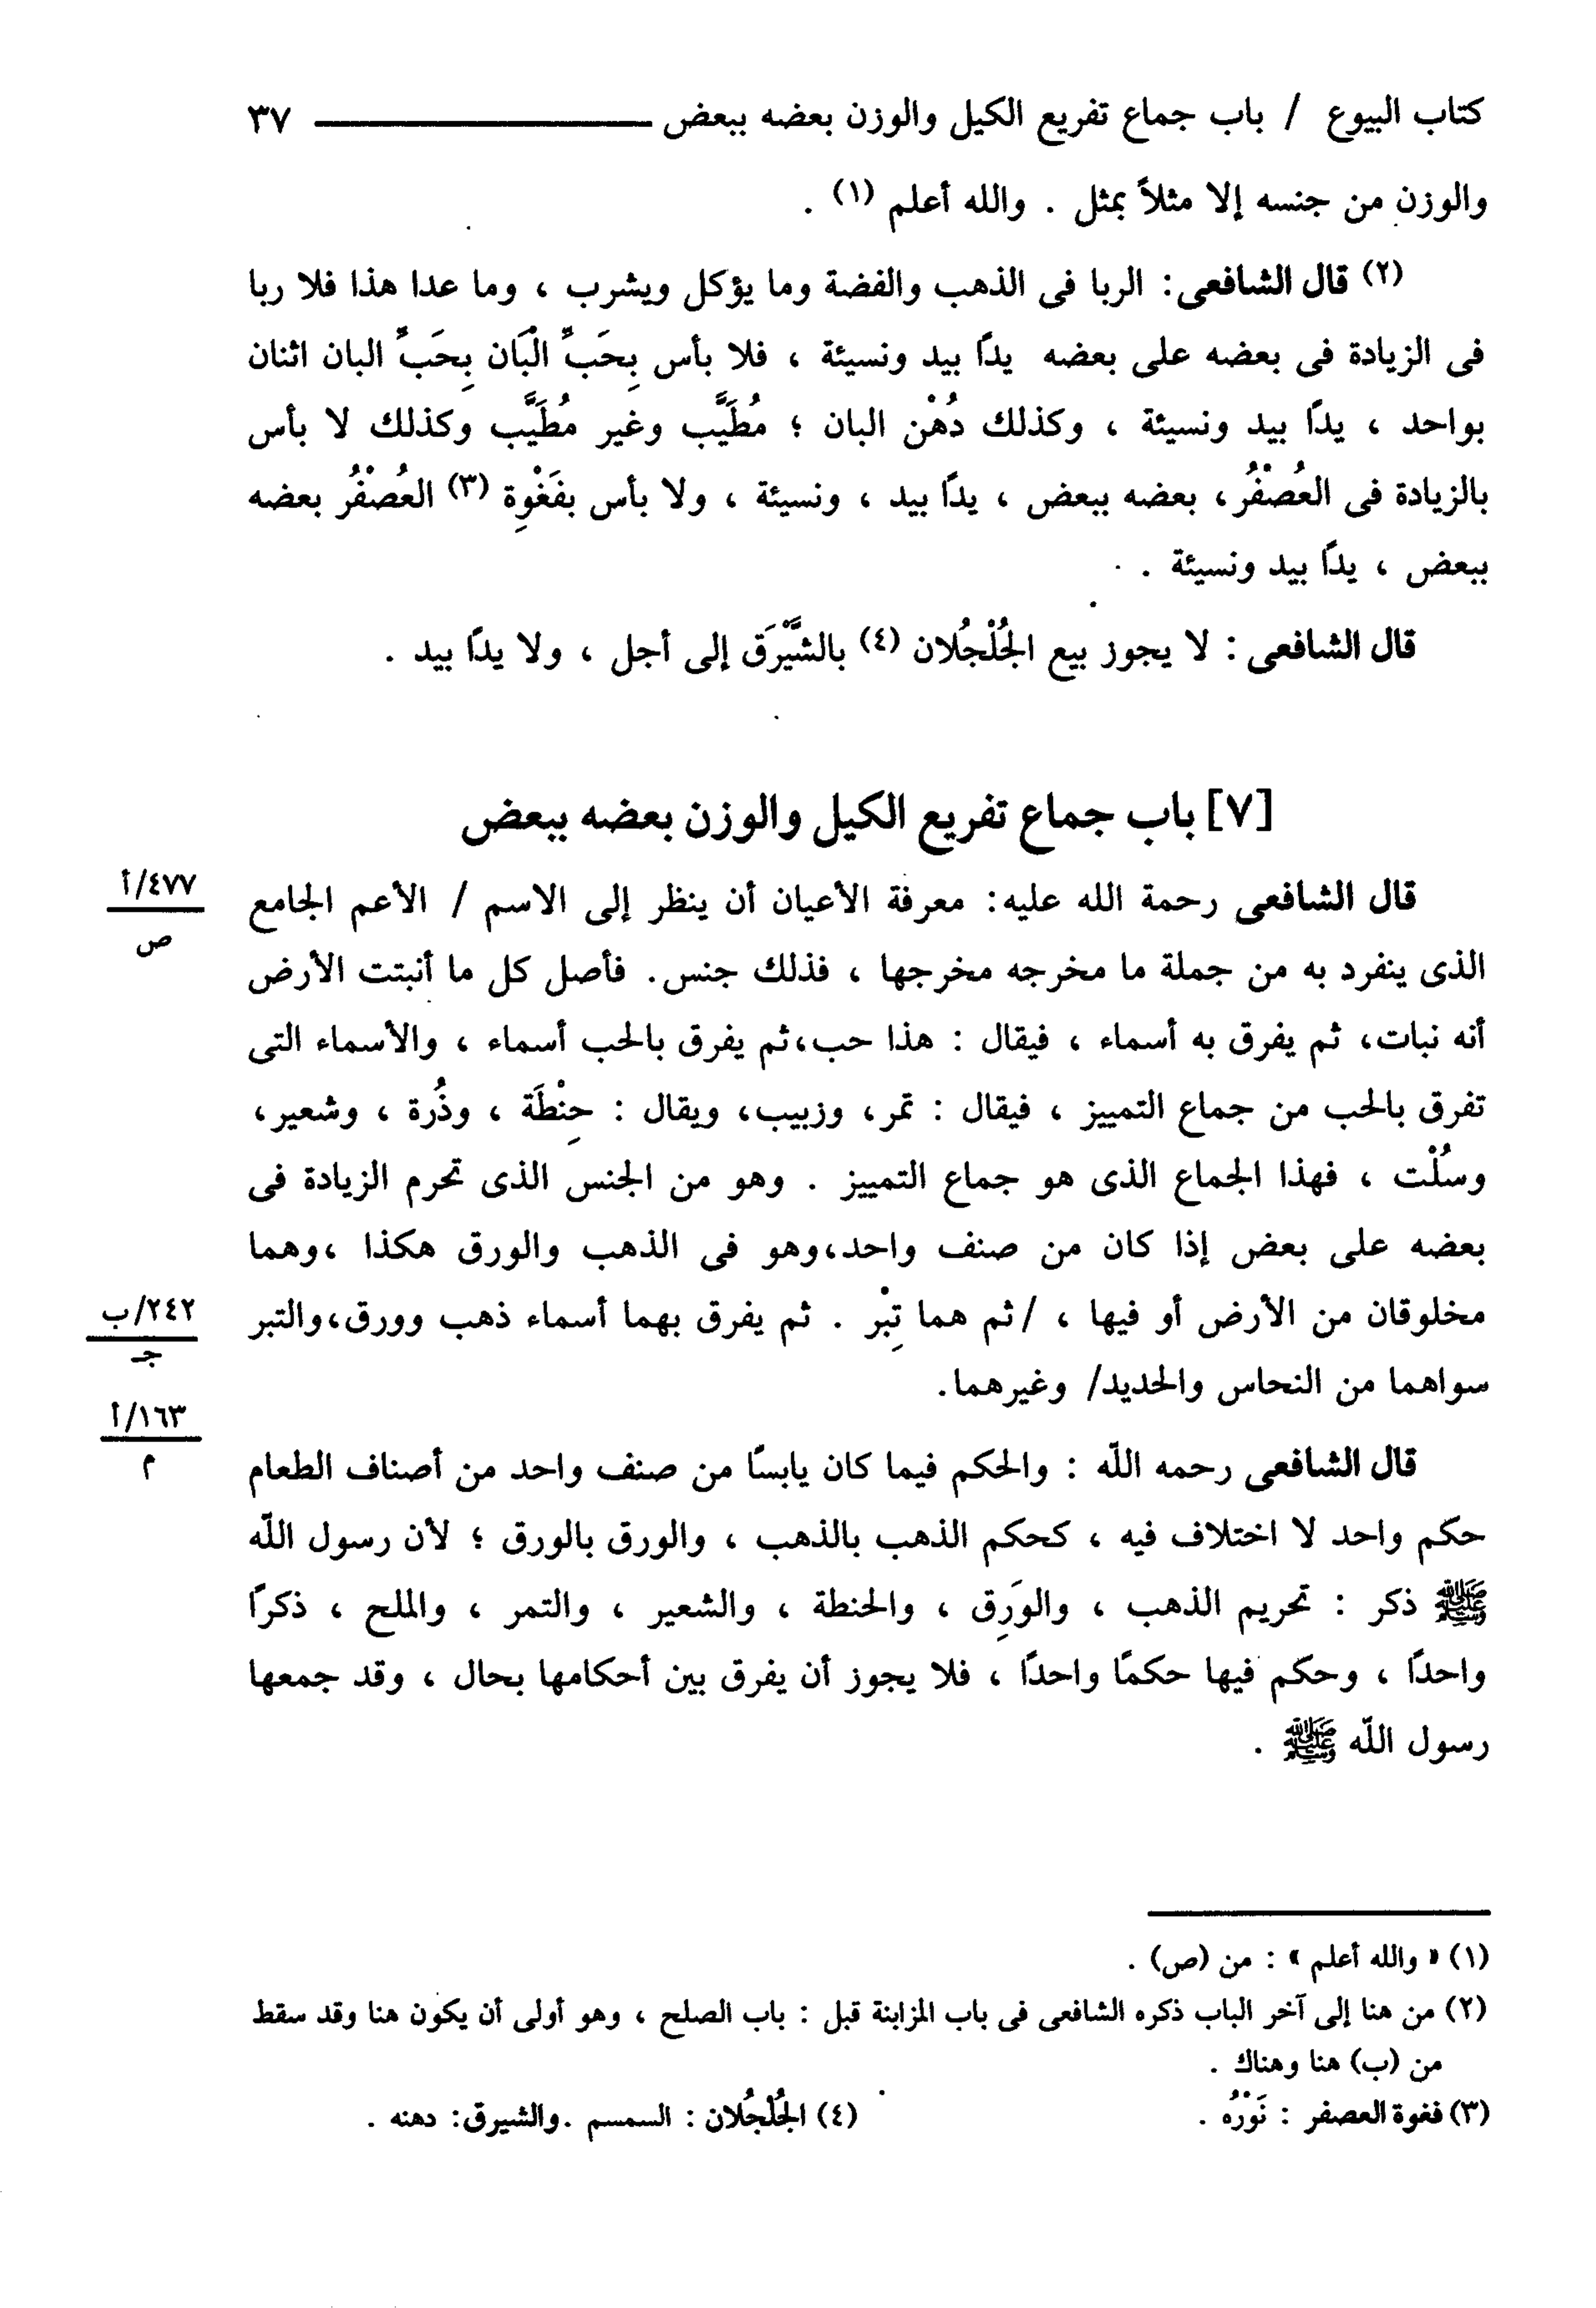 كتاب البيوع / باب جماع تفريع الكيل والوزن بعضه ببعض ٣٧
والوزن من جنسه إلا مثلاً بمثل . والله أعلم (١) .
(٢) قال الشافعى: الربا فى الذهب والفضة وما يؤكل ويشرب ، وما عدا هذا فلا ربا
فى الزيادة فى بعضه على بعضه يداً بيد ونسيئة ، فلا بأس بِحَبِّ الْبَان بِحَبِّ البان اثنان
بواحد ، يداً بيد ونسيئة ، وكذلك دُهْن البان ؛ مُطَيَّب وغير مُطَيَّب وكذلك لا بأس
بالزيادة فى العُصْفُر، بعضه ببعض ، يداً بيد ، ونسيئة ، ولا بأس بفَغْوِة (٣) العُصْفُر بعضه
ببعض ، يداً بيد ونسيئة .
قال الشافعى : لا يجوز بيع الجُلْجُلان (٤) بالشَّيْرَق إلى أجل ، ولا يداً بيد .
[٧] باب جماع تفريع الكيل والوزن بعضه ببعض
قال الشافعى رحمة الله عليه: معرفة الأعيان أن ينظر إلى الاسم / الأعم الجامع
٤٧٧/أ
ص
الذى ينفرد به من جملة ما مخرجه مخرجها ، فذلك جنس. فأصل كل ما أنبتت الأرض
أنه نبات، ثم يفرق به أسماء ، فيقال : هذا حب،ثم يفرق بالحب أسماء ، والأسماء التى
تفرق بالحب من جماع التمييز ، فيقال : تمر، وزبيب، ويقال : حِنْطَة ، وذُرة ، وشعير،
وسُلْت ، فهذا الجماع الذى هو جماع التمييز . وهو من الجنس الذى تحرم الزيادة فى
بعضه على بعض إذا كان من صنف واحد،وهو فى الذهب والورق هكذا ،وهما
مخلوقان من الأرض أو فيها ، /ثم هما تِبْر . ثم يفرق بهما أسماء ذهب وورق،والتبر
٢٤٢/ب
جـ
سواهما من النحاس والحديد/ وغيرهما.
١٦٣/أ
م
قال الشافعى رحمه اللّه : والحكم فيما كان يابسًا من صنف واحد من أصناف الطعام
حكم واحد لا اختلاف فيه ، كحكم الذهب بالذهب ، والورق بالورق ؛ لأن رسول اللّه
ﷺ ذكر : تحريم الذهب ، والوَرِق ، والحنطة ، والشعير ، والتمر ، والملح ، ذكرًا
واحدًا ، وحكم فيها حكمًا واحدًا ، فلا يجوز أن يفرق بين أحكامها بحال ، وقد جمعها
رسول اللّه ﷺ .
(١) « والله أعلم » : من (ص) .
(٢) من هنا إلى آخر الباب ذكره الشافعى فى باب المزابنة قبل : باب الصلح ، وهو أولى أن يكون هنا وقد سقط
من (ب) هنا وهناك .
(٣) فغوة العصفر : نَوْرُه . (٤) الجُلْجُلان : السمسم .والشيرق: دهنه .